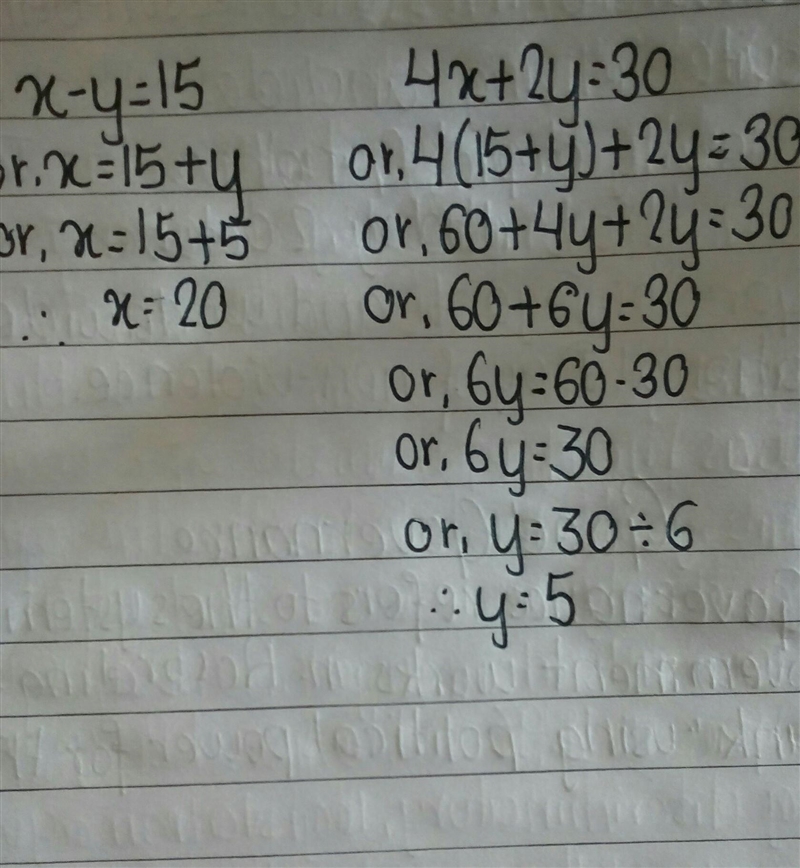 x-y=15
or, x=15+y
or, x=15+5
∴ x=20
4x+2y=30
or, 4(15+y)+2y=30
or, 60+4y+2y=30
or, 60+6y=30
or, 6y=60-30
or, 6y=30
or, y=30÷6
∴ y=5